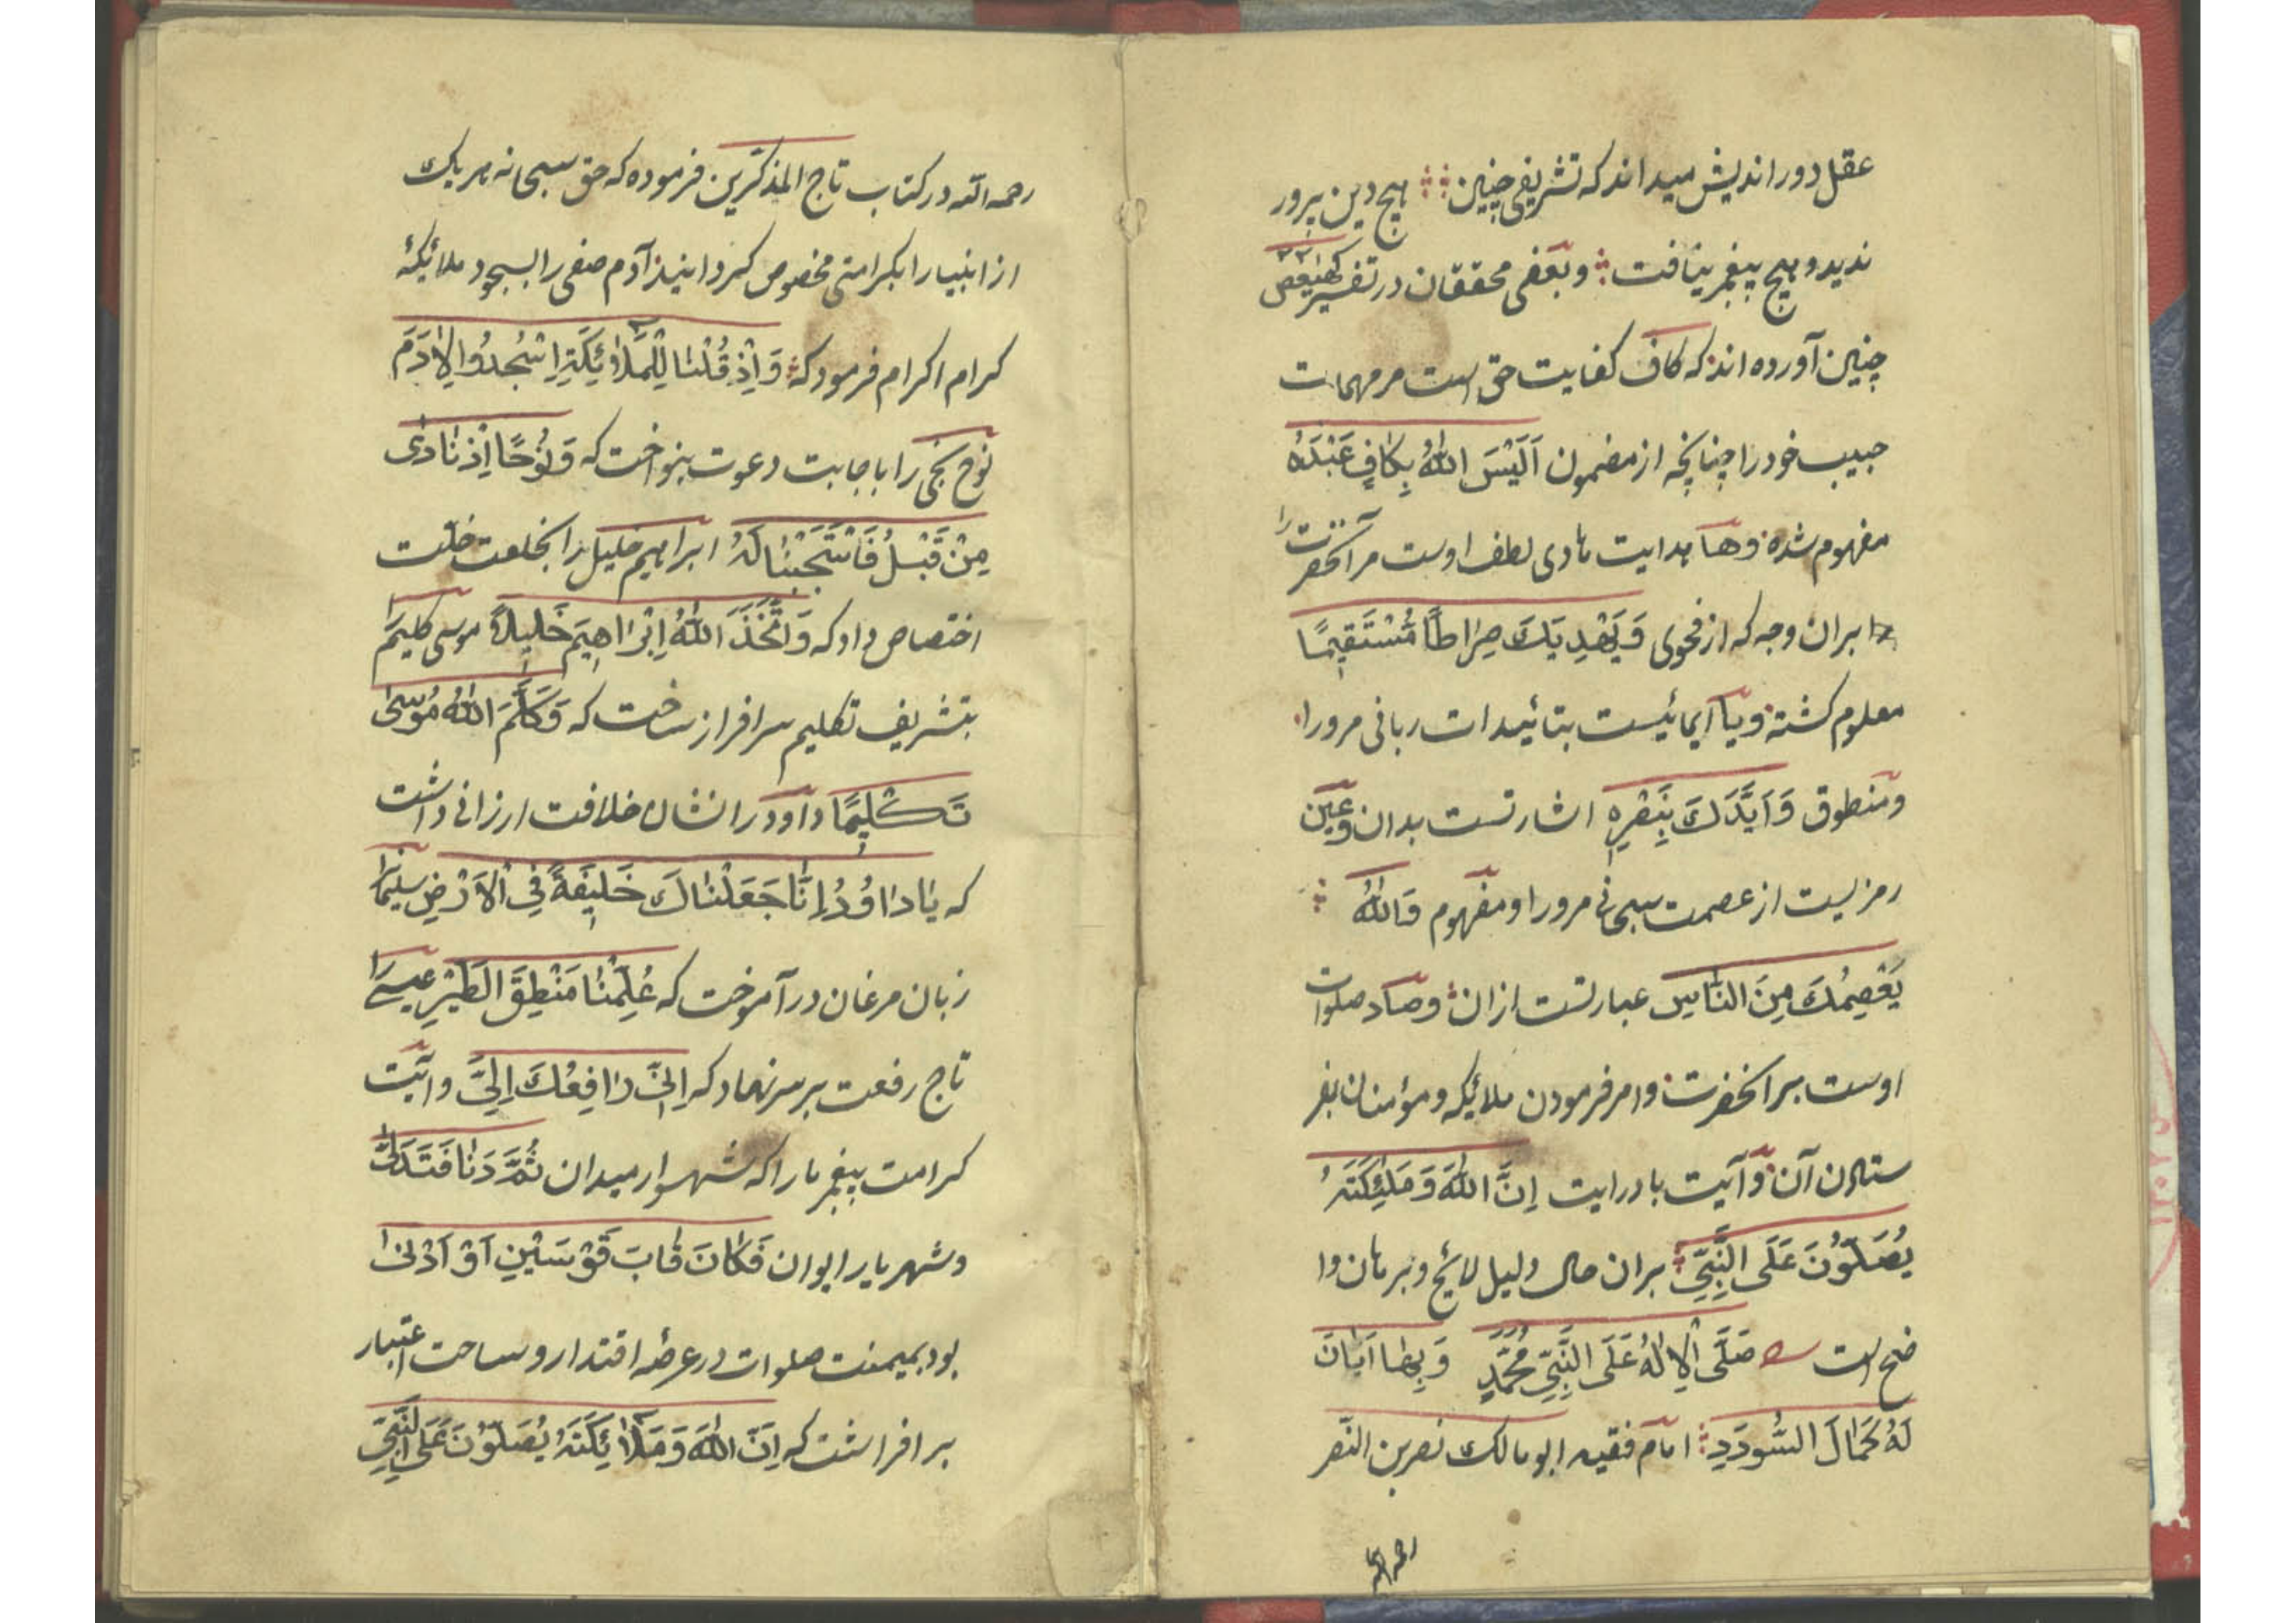 عقل دور اندیش میداند که تشریفی چنین هیچ دین پرور
ندید و هیچ پیغمبر نیافت و بعضی محققان در تفسیر کهیعص
چنین آورده اند که کاف کفایت حق است مر مهمات
حبیب خود را چنانچه از مضمون اَلَیْسَ اللهُ بِکافٍ عَبْدَهُ
مفهوم شده وها هدایت هادی لطف اوست مر آنحضرت را
بران وجه که از فحوی وَیَهْدِیَكَ صِرَاطًا مُسْتَقِیمًا
معلوم کشته ویا ایمائیست بتائیدات ربانی مرورا
ومنطوق وَاَیَّدَكَ بِنَصْرِهِ اشارتست بدان وعین
رمزیست از عصمت سبحانی مرورا ومفهوم وَاللهُ
یَعْصِمُكَ مِنَ النَّاسِ عبارتست ازان وصاد صلوات
اوست بر آنحضرت وامر فرمودن ملائیکه ومؤمنان بفر
ستادن آن وآیت با درایت اِنَّ اللهَ وَمَلٰئِکَتَهُ
یُصَلُّوْنَ عَلَی النَّبِیِّ بران حال دلیل لائح وبرهان وا
ضح است صَلَّی الْاِلٰهُ عَلَی النَّبِیِّ مُحَمَّدٍ وَبِهَا اَبَانَ
لَهُ کَمَالَ السُّودَدِ امام فقیه ابو مالك نصر بن النصر
رحمه الله
رحمه الله در کتاب تاج المذکّرین فرموده که حق سبحانه هر یك
از انبیا را بکرامتی مخصوص کردانید آدم صفی را بسجود ملائیکهٔ
کرام اکرام فرمود که وَاِذْ قُلْنَا لِلْمَلٰٓائِکَةِ اسْجُدُوا لِاٰدَمَ
نوح نجی را باجابت دعوت بنواخت که وَنُوْحًا اِذْ نَادٰی
مِنْ قَبْلُ فَاسْتَجَبْنَا لَهُ ابراهیم خلیل را بخلعت خلّت
اختصاص داد که وَاتَّخَذَ اللهُ اِبْرَاهِیمَ خَلِیلًا موسی کلیم را
بتشریف تکلیم سرافراز ساخت که وَکَلَّمَ اللهُ مُوْسٰی
تَکْلِیمًا داود را نشان خلافت ارزانی داشت
که یَا دَاوُدُ اِنَّا جَعَلْنَاكَ خَلِیفَةً فِی الْاَرْضِ سلیمانرا
زبان مرغان در آموخت که عُلِّمْنَا مَنْطِقَ الطَّیْرِ عیسی را
تاج رفعت بر سر نهاد که اِنِّی رَافِعُكَ اِلَیَّ وآیت
کرامت پیغمبر ما را که شهسوار میدان ثُمَّ دَنَا فَتَدَلّٰی
وشهریار ایوان فَکَانَ قَابَ قَوْسَیْنِ اَوْ اَدْنٰی
بود بمیمنت صلوات در عرصهٔ اقتدار و ساحت اعتبار
بر افراشت که اِنَّ اللهَ وَمَلٰٓائِکَتَهُ یُصَلُّوْنَ عَلَی النَّبِیِّ